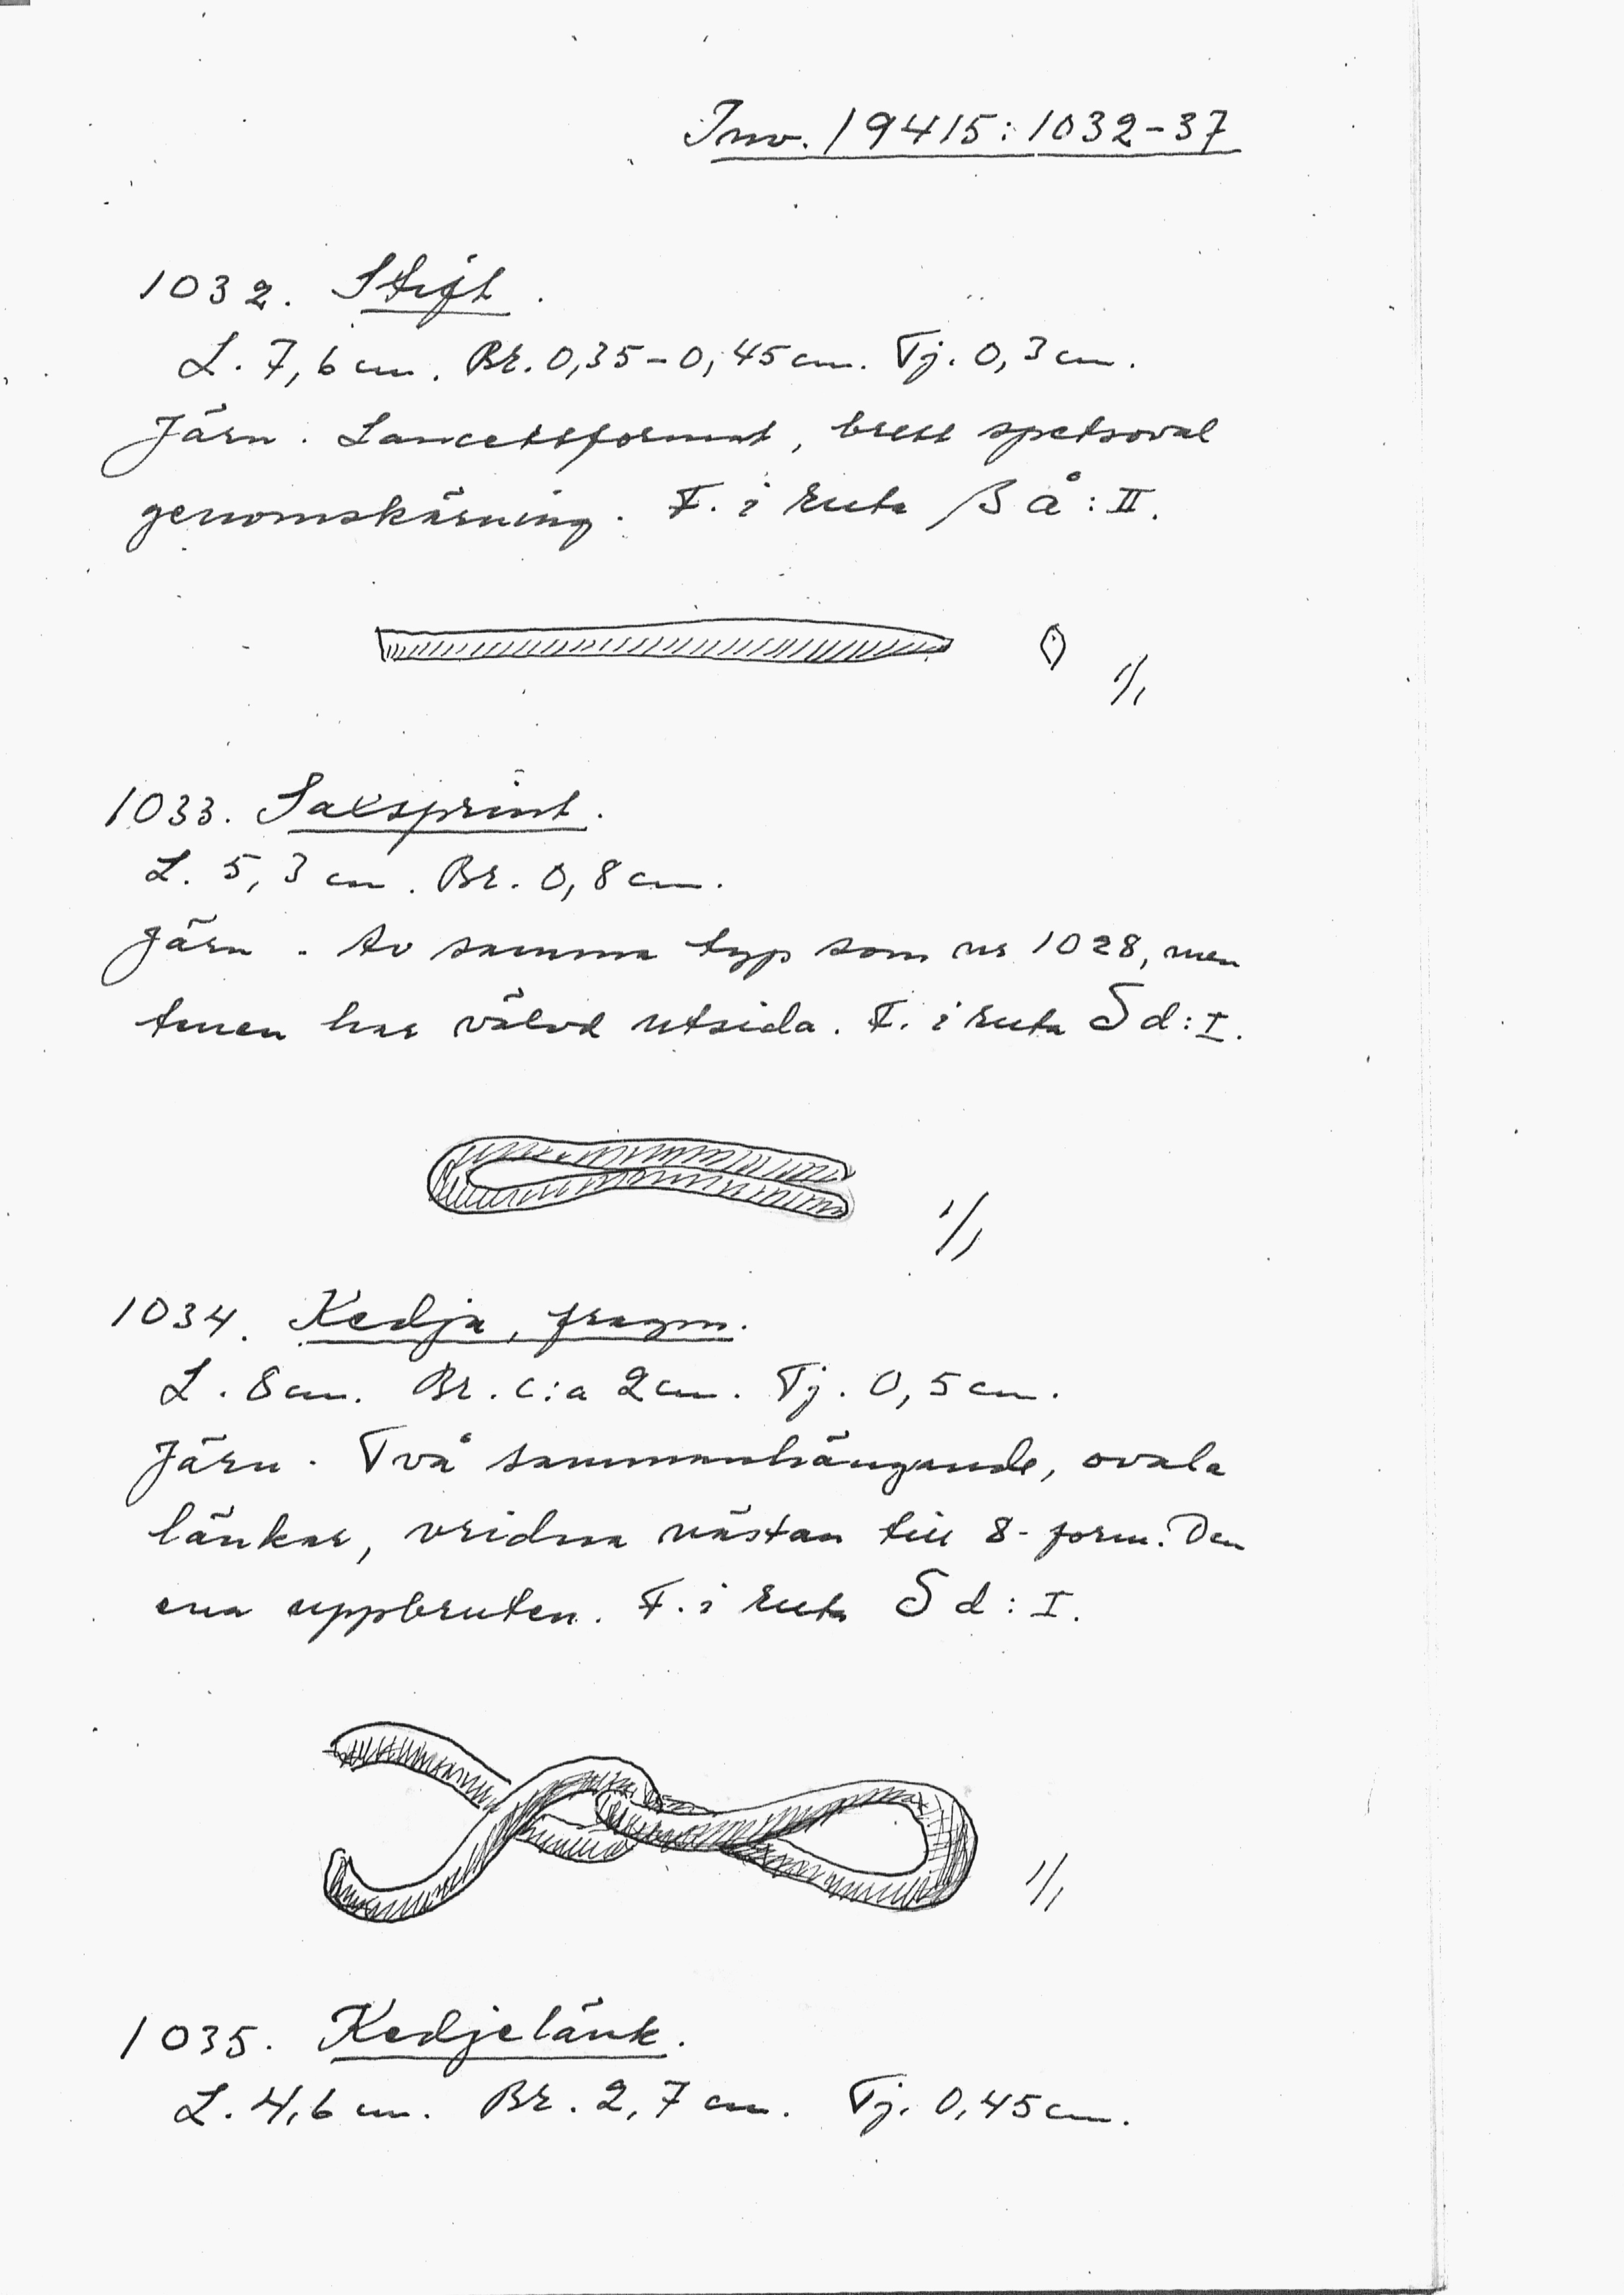 Inv. 19415:1032-37
1032. Stift.
L. 7,6 cm. Br. 0,35-0,45 cm. Tj. 0,3 cm.
Järn. Lancettformat, bred spetsoval
genomskärning. F. i ruta β å: II.
1/1
1033. Saxsprint.
L. 5,3 cm. Br. 0,8 cm.
Järn. Av samma typ som nr 1028, men
tenen har välvd utsida. F. i ruta S d: I.
1/1
1034. Kedja, fragm.
L. 8 cm. Br. c:a 2 cm. Tj. 0,5 cm.
Järn. Två sammanhängande, ovala
länkar, vridna nästan till 8-form. Den
ena uppbruten. F. i ruta S d: I.
1/1
1035. Kedjelänk.
L. 4,6 cm. Br. 2,7 cm. Tj. 0,45 cm.